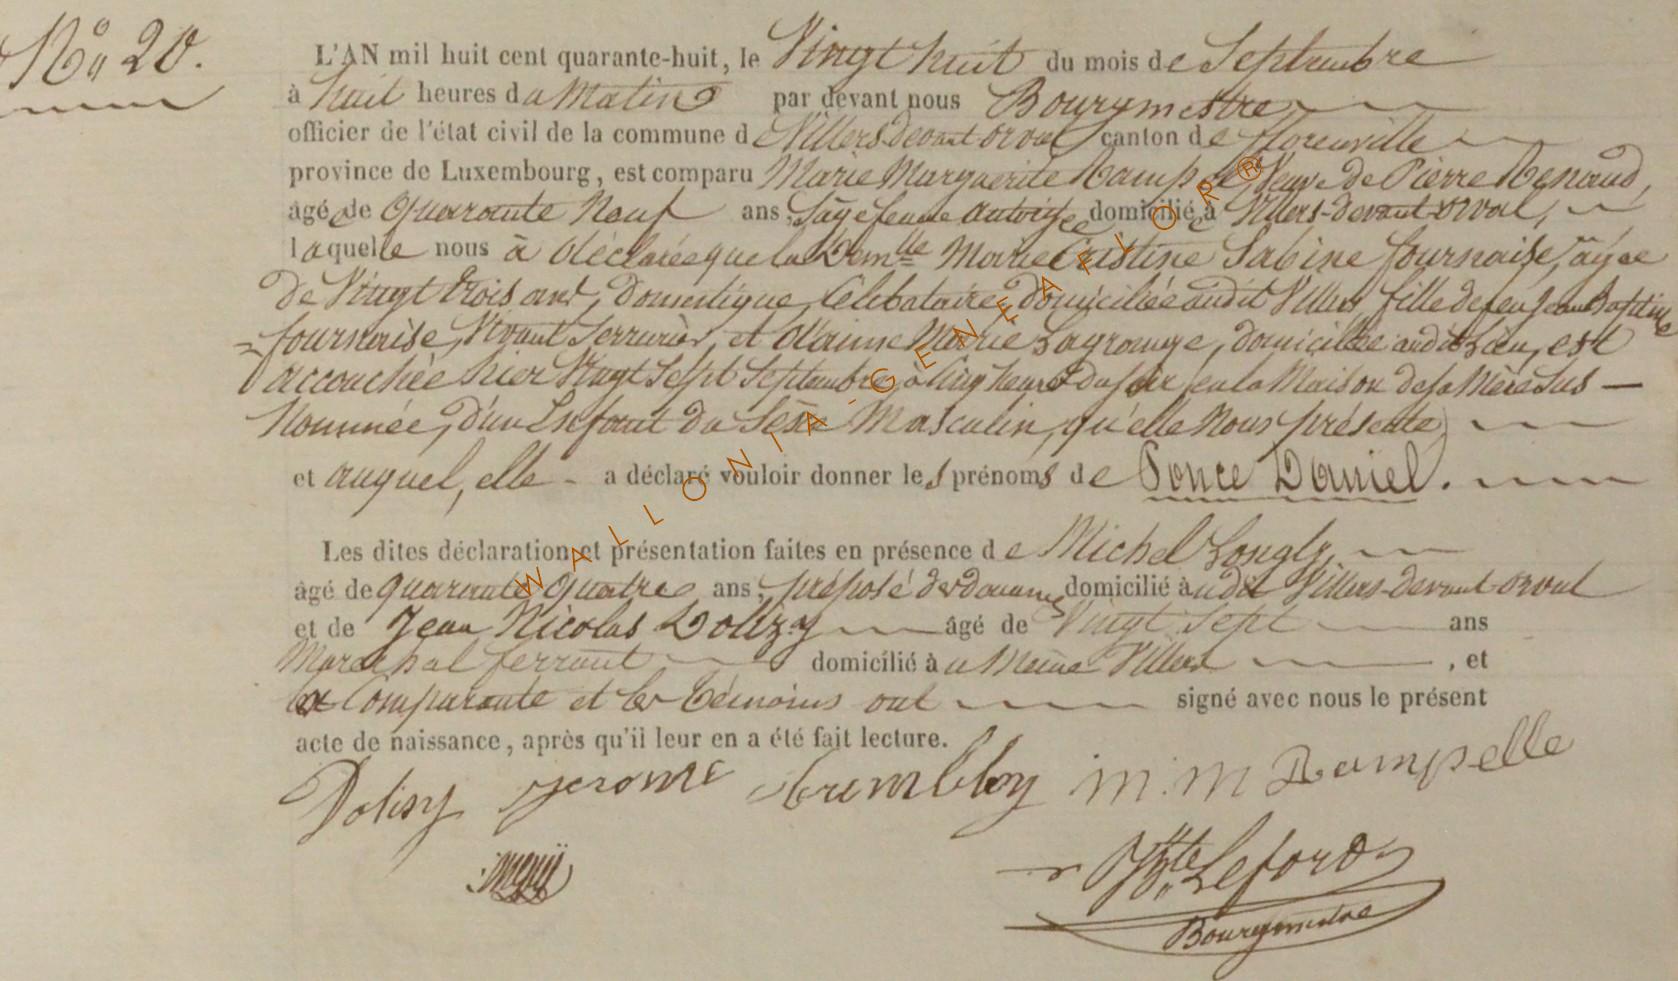 N° 20.
L'AN mil huit cent quarante-huit, le Vingt huit du mois de Septembre
à huit heures du Matin par devant nous Bourgmestre
officier de l'état civil de la commune de Villers devant orval canton de florenville
province de Luxembourg, est comparu Marie Marguerite Veuve de Pierre Renaud,
agée de Quarante Neuf ans, Sage femme domicilié à Villers-devant-orval,
laquelle nous à déclarée que la Dem.lle Marie Cristine Sabine fournaise, âgée
de Vingt trois ans, domestique, Célibataire, domiciliée audit Villers fille de feu Jean Baptiste
fournaise, Vivant Serrurier, et d'anne Marie Lagrange, domiciliée audit Lieu, est
accouchée hier Vingt Sept Septembre, à Cinq heures du soir, en la Maison de sa Mère Sus —
Nommée, d'un Enfant du Sexe Masculin, qu'elle Nous présente,
et auquel, elle - a déclaré vouloir donner les prénoms de Ponce Daniel.
Les dites déclaration et présentation faites en présence de Michel
âgé de quarante Quatre ans, préposé des douanes domicilié audit Villers-devant-orval
et de Jean Nicolas âgé de Vingt Sept ans
Marechal ferrant domicilié au Même Villers , et
la Comparante et les témoins ont signé avec nous le présent
acte de naissance, après qu'il leur en a été fait lecture.
jerome M. M
Leford
Bourgmestre
WALLONIA-GENEAFLOR®